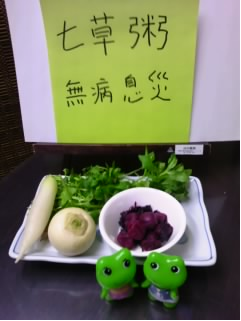 七草粥
無病息災